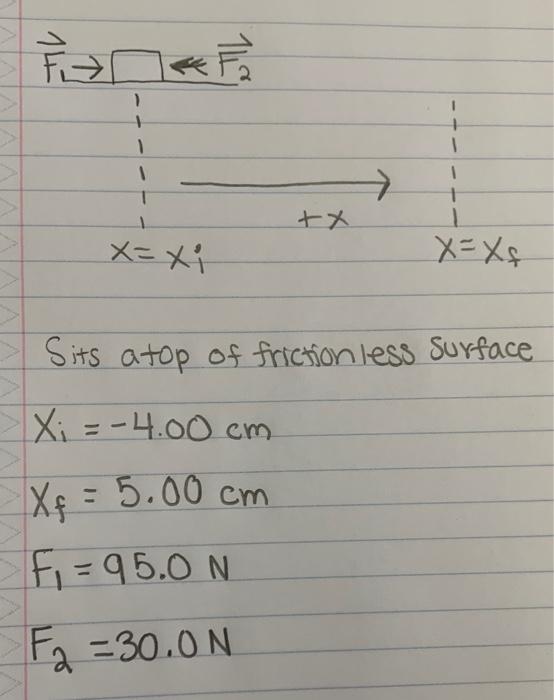 F₁ → ← F₂
+x
x = xᵢ x = x_f
Sits atop of frictionless surface
Xᵢ = -4.00 cm
X_f = 5.00 cm
F₁ = 95.0 N
F₂ = 30.0 N